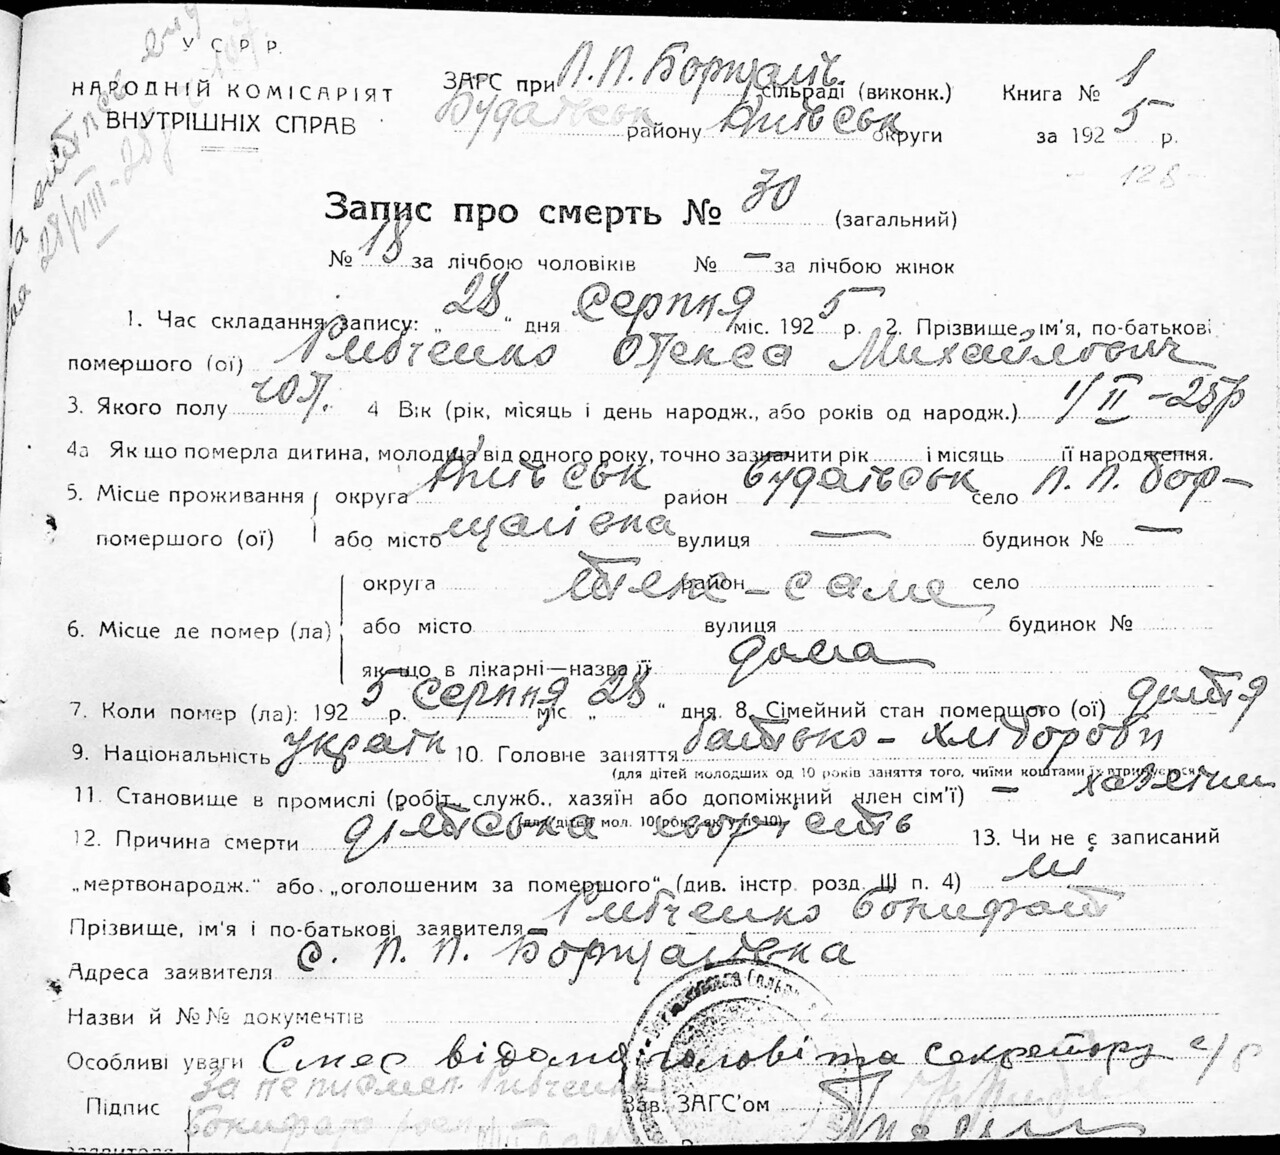 У С Р Р.
НАРОДНІЙ КОМІСАРІЯТ
ВНУТРІШНІХ СПРАВ
28/VIII-25р
ЗАГС при П.П. Борщагів. сільраді (виконк.)
Будаївськ району Київськ округи
Книга № 1
за 1925 р.
128
Запис про смерть № 30 (загальний)
№ 18 за лічбою чоловіків № — за лічбою жінок
1. Час складання запису: „28“ дня Серпня міс. 1925 р. 2. Прізвище, ім'я, по-батькові
помершого (ої) Рибченко Олекса Михайлович
3. Якого полу чол. 4 Вік (рік, місяць і день народж., або років од народж.) 1/II-25р
4а Як що померла дитина, молодша від одного року, точно зазначити рік і місяць її народження.
5. Місце проживання округа Київськ район Будаївськ село П.П. Бор-
помершого (ої) або місто щагівка вулиця — будинок № —
округа район село
Теж-саме
6. Місце де помер (ла) або місто вулиця будинок №
як-що в лікарні—назва її дома
7. Коли помер (ла): 1925 р. серпня міс „28“ дня. 8. Сімейний стан помершого (ої) дитя
9. Національність україн 10. Головне заняття батько-хлібороб
(для дітей молодших од 10 років заняття того, чиїми коштами їх втримується)
11. Становище в промислі (робіт., служб., хазяїн або допоміжний член сім'ї) —
(для дітей мол. 10 рок., як у п. 10)
12. Причина смерти дитяська 13. Чи не є записаний
„мертвонародж.“ або „оголошеним за помершого“ (див. інстр. розд. III п. 4) ні
Прізвище, ім'я і по-батькові заявителя Рибченко Бонифат
Адреса заявителя с. П.П. Борщагівка
Назви й №№ документів
Особливі уваги Смер відома голові та секретару с/р
Підпис за неписмен. Рибченка
Бонифата
заявителя
Зав. ЗАГС'ом